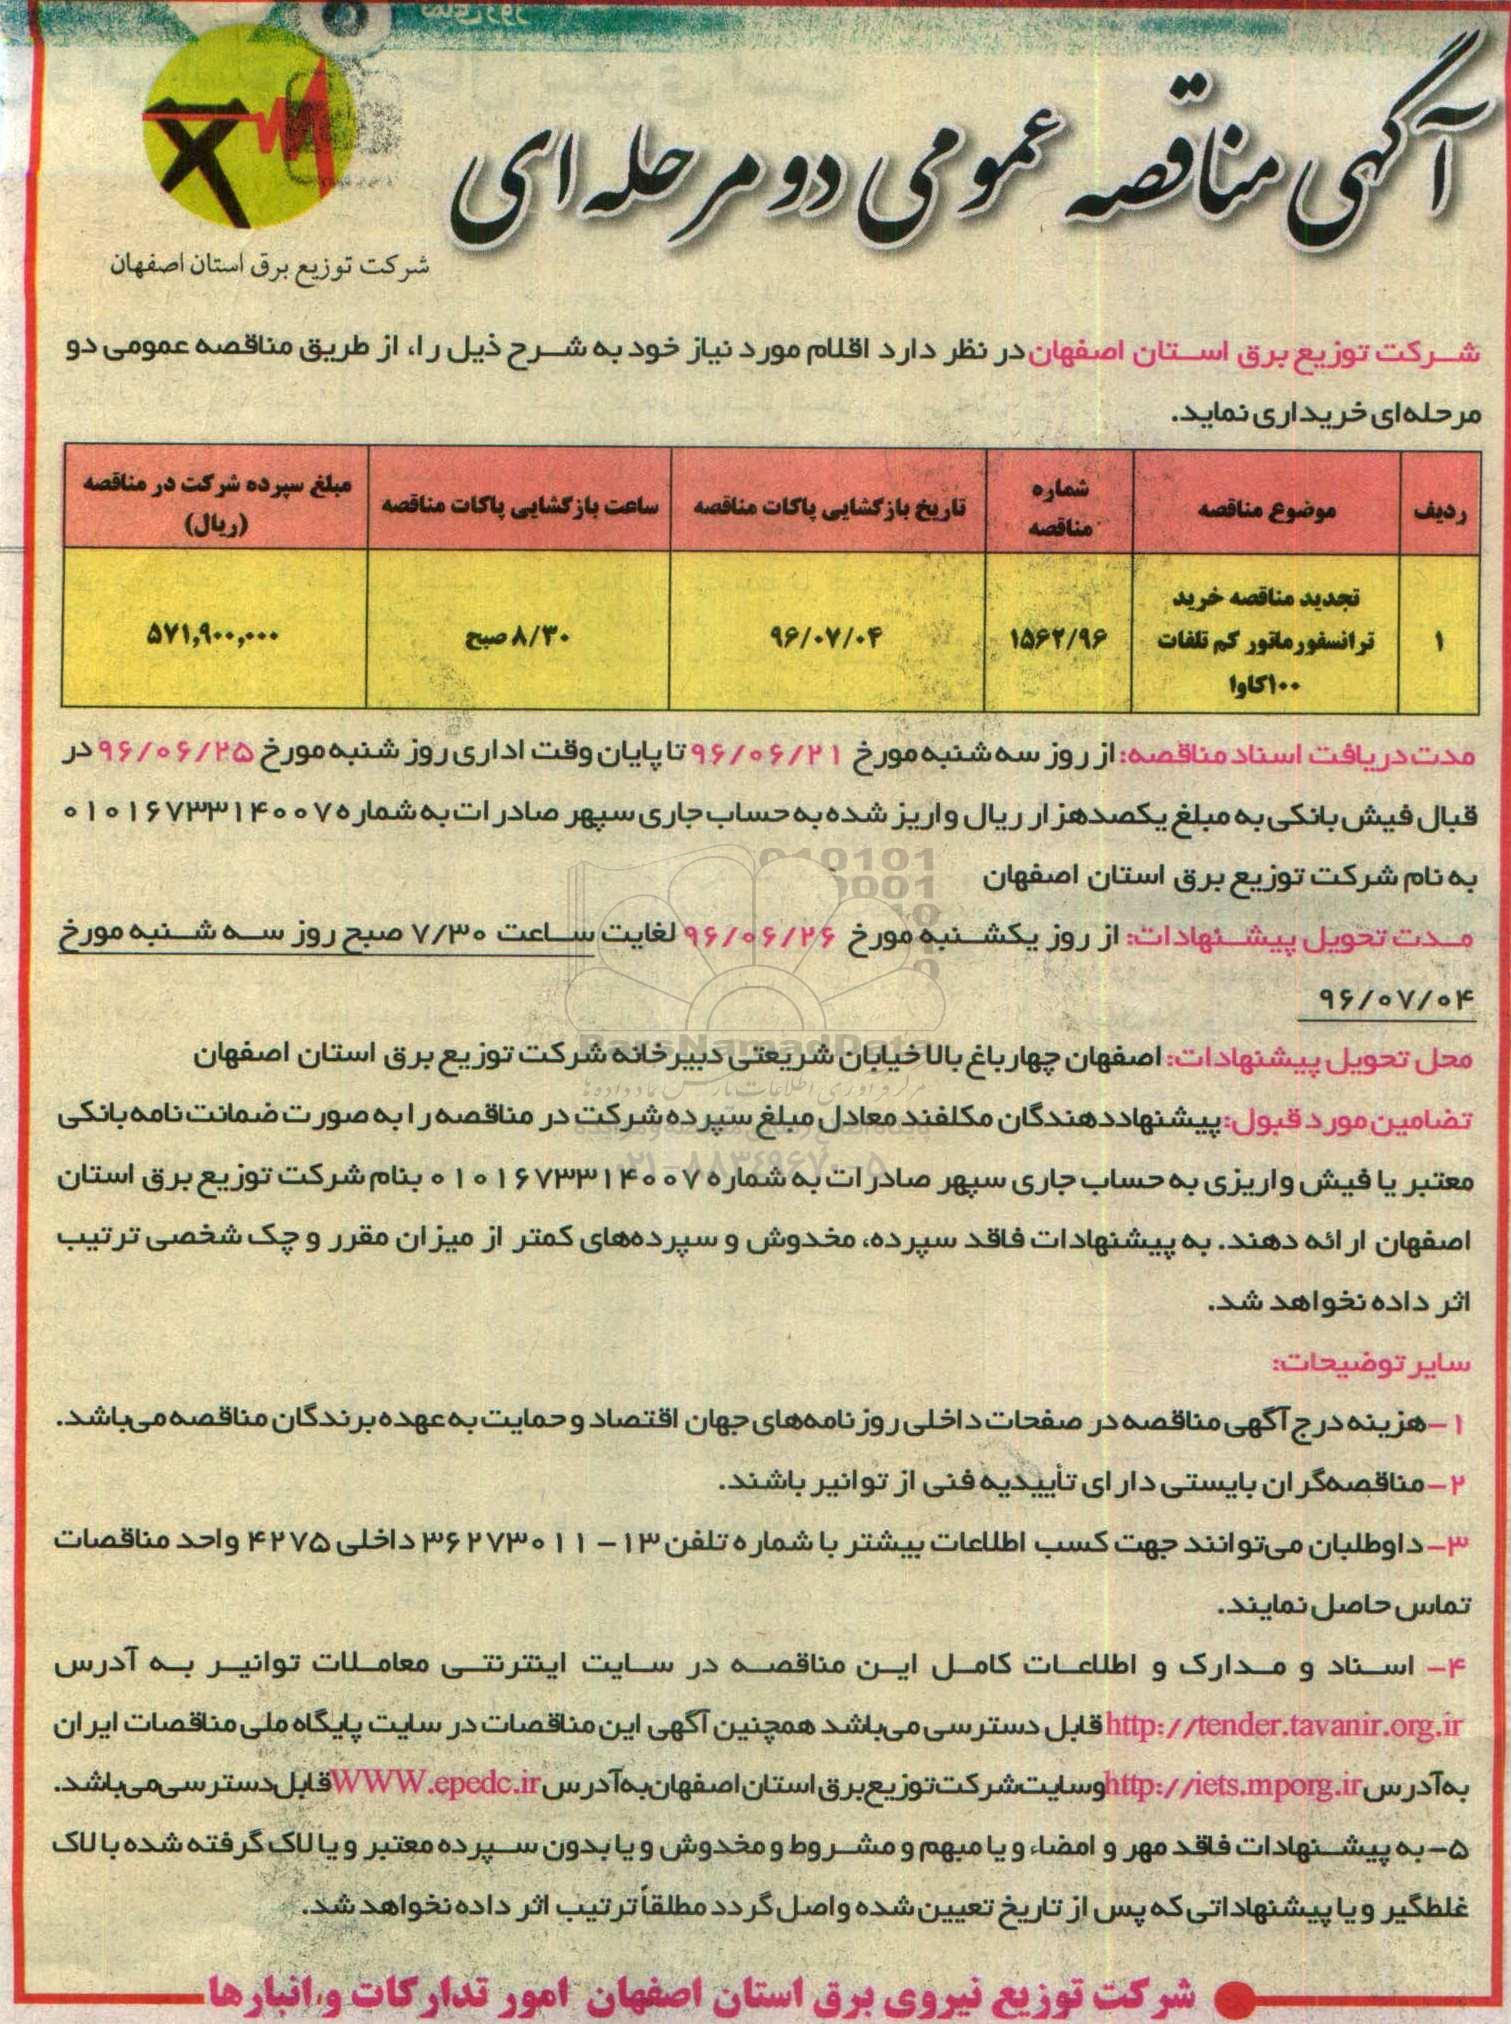 آگهی مناقصه عمومی دو مرحله ای
شرکت توزیع برق استان اصفهان
شرکت توزیع برق استان اصفهان در نظر دارد اقلام مورد نیاز خود به شرح ذیل را، از طریق مناقصه عمومی دو
مرحله‌ای خریداری نماید.
ردیف
موضوع مناقصه
شماره
مناقصه
تاریخ بازگشایی پاکات مناقصه
ساعت بازگشایی پاکات مناقصه
مبلغ سپرده شرکت در مناقصه
(ریال)
۱
تجدید مناقصه خرید
ترانسفورماتور کم تلفات
۱۰۰کاوا
۱۵۶۲/۹۶
۹۶/۰۷/۰۴
۸/۳۰ صبح
۵۷۱,۹۰۰,۰۰۰
مدت دریافت اسناد مناقصه: از روز سه شنبه مورخ ۹۶/۰۶/۲۱ تا پایان وقت اداری روز شنبه مورخ ۹۶/۰۶/۲۵ در
قبال فیش بانکی به مبلغ یکصدهزار ریال واریز شده به حساب جاری سپهر صادرات به شماره ۰۱۰۱۶۷۳۳۱۴۰۰۷
به نام شرکت توزیع برق استان اصفهان
مدت تحویل پیشنهادات: از روز یکشنبه مورخ ۹۶/۰۶/۲۶ لغایت ساعت ۷/۳۰ صبح روز سه شنبه مورخ
۹۶/۰۷/۰۴
محل تحویل پیشنهادات: اصفهان چهارباغ بالا خیابان شریعتی دبیرخانه شرکت توزیع برق استان اصفهان
تضامین مورد قبول: پیشنهاددهندگان مکلفند معادل مبلغ سپرده شرکت در مناقصه را به صورت ضمانت نامه بانکی
معتبر یا فیش واریزی به حساب جاری سپهر صادرات به شماره ۰۱۰۱۶۷۳۳۱۴۰۰۷ بنام شرکت توزیع برق استان
اصفهان ارائه دهند. به پیشنهادات فاقد سپرده، مخدوش و سپرده‌های کمتر از میزان مقرر و چک شخصی ترتیب
اثر داده نخواهد شد.
سایر توضیحات:
۱-هزینه درج آگهی مناقصه در صفحات داخلی روزنامه‌های جهان اقتصاد و حمایت به عهده برندگان مناقصه می‌باشد.
۲-مناقصه‌گران بایستی دارای تأییدیه فنی از توانیر باشند.
۳- داوطلبان می‌توانند جهت کسب اطلاعات بیشتر با شماره تلفن ۱۳-۳۶۲۷۳۰۱۱ داخلی ۴۲۷۵ واحد مناقصات
تماس حاصل نمایند.
۴- اسناد و مدارک و اطلاعات کامل این مناقصه در سایت اینترنتی معاملات توانیر به آدرس
http://tender.tavanir.org.ir قابل دسترسی می‌باشد همچنین آگهی این مناقصات در سایت پایگاه ملی مناقصات ایران
به آدرس http://iets.mporg.ir وسایت شرکت توزیع برق استان اصفهان به آدرس WWW.epedc.ir قابل دسترسی می‌باشد.
۵-به پیشنهادات فاقد مهر و امضاء و یا مبهم و مشروط و مخدوش و یا بدون سپرده معتبر و یا لاک گرفته شده با لاک
غلطگیر و یا پیشنهاداتی که پس از تاریخ تعیین شده واصل گردد مطلقاً ترتیب اثر داده نخواهد شد.
شرکت توزیع نیروی برق استان اصفهان امور تدارکات و انبارها